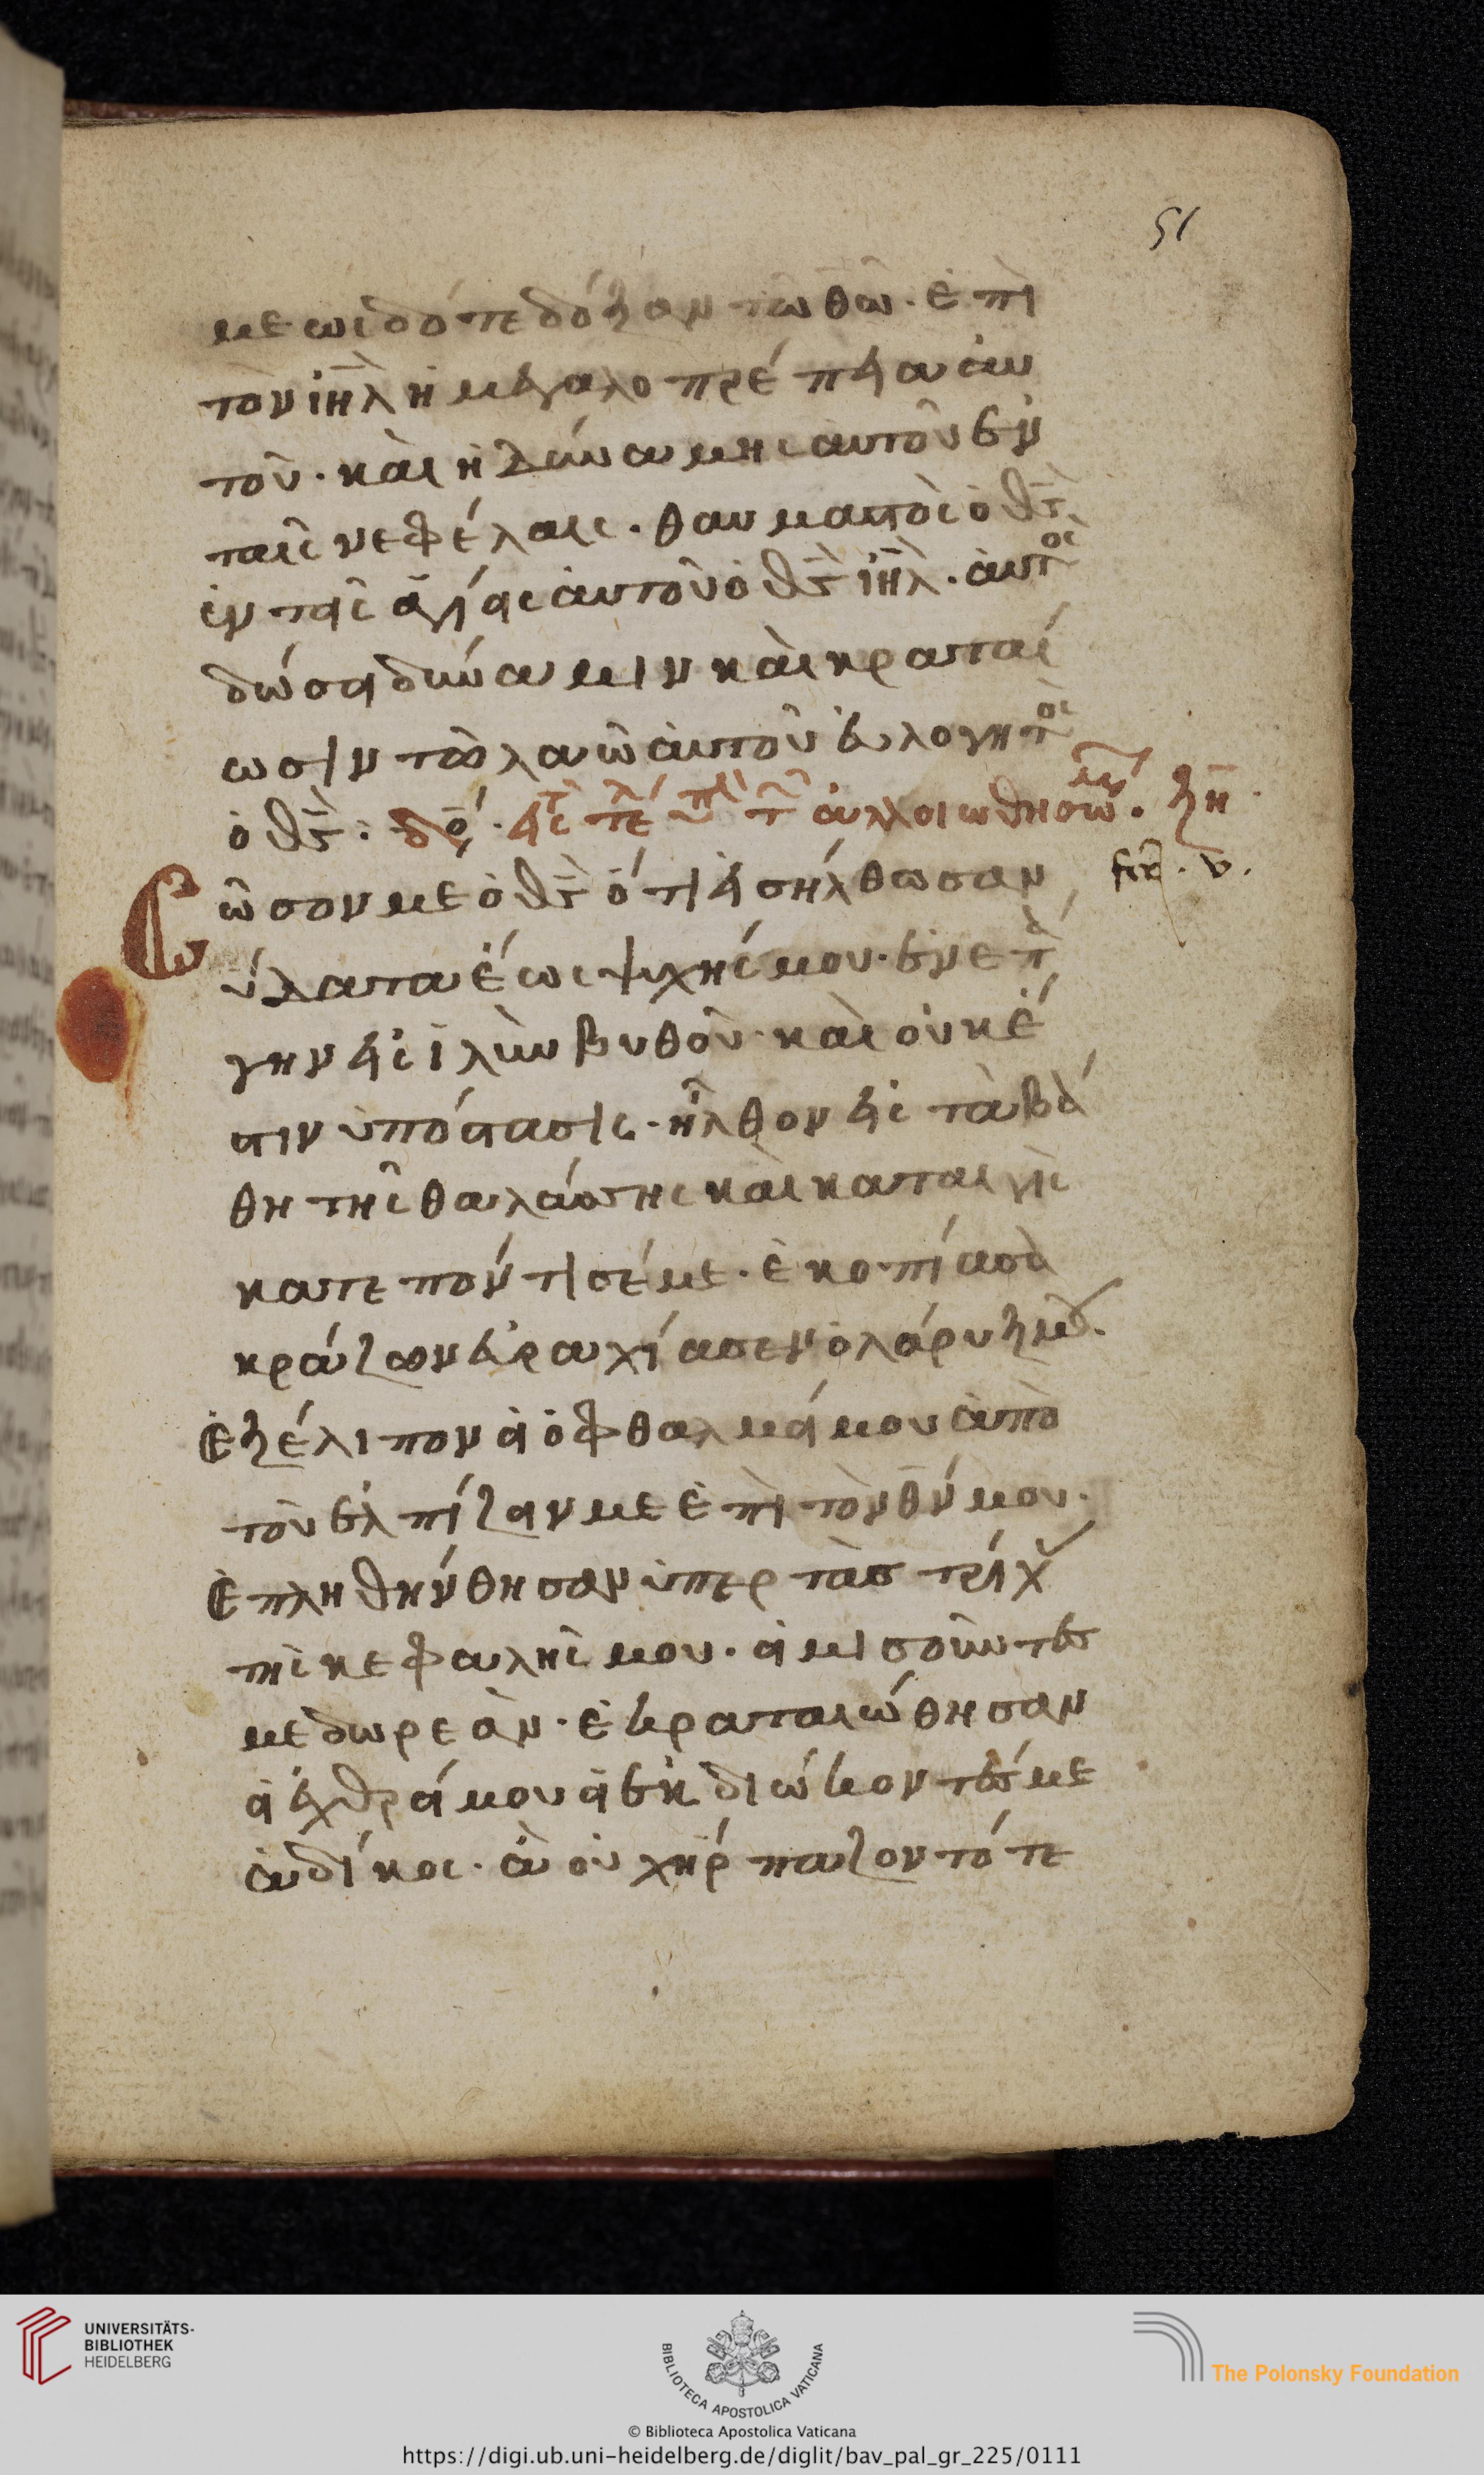 51
με ωςδότε δόξαν τῶ θῶ. ἐπὶ
τὸν ιηλ ἡ μεγαλοπρέπεια αυ
τοῦ. καὶ ἡ δύναμης αυτοῦ ἐν
ταῖς νεφέλαις. θαυμαστὸς ὁ θς
ἐν τοῖς ἁγίοις αυτοῦ ὁ θς ιηλ. αυτος
δώσει δύναμιν καὶ κραταί
ωσιν τῶ λαῶ αυτοῦ εὐλογητος
ὁ θς:
Σῶσον με ὁ θς ὅτι εἰσήλθωσαν
ὕδατα ἕως ψυχής μου. ἐνεπά
γην εἰς ιλὺν βυθοῦ καὶ οὐκ έ
στιν ὑπόστασις. ἦλθον εἰς τὰ βά
θη τῆς θαλάσσης καὶ καταιγὶς
κατεπόντισέ με. ἐκοπίασα
κράζων ἐβραχίασεν ὁ λάρυξ μου.
Ἐξέλιπον οἱ ὀφθαλμοί μου ἀπὸ
τοῦ ἐλπίζειν με ἐπὶ τὸν θν μου.
Ἐπληθήνθησαν ὑπερ τὰς τρίχ
τῆς κεφαλῆς μου. οἱ μισοῦντες
με δωρεὰν. ἐκραταιώθησαν
οἱ ἐχθροί μου οἱ ἐκδιώκοντές με
ἀδίκος. ἃ οὐχ ήρπαζον τότε
UNIVERSITÄTS-
BIBLIOTHEK
HEIDELBERG
BIBLIOTECA APOSTOLICA VATICANA
The Polonsky Foundation
© Biblioteca Apostolica Vaticana
https://digi.ub.uni-heidelberg.de/diglit/bav_pal_gr_225/0111